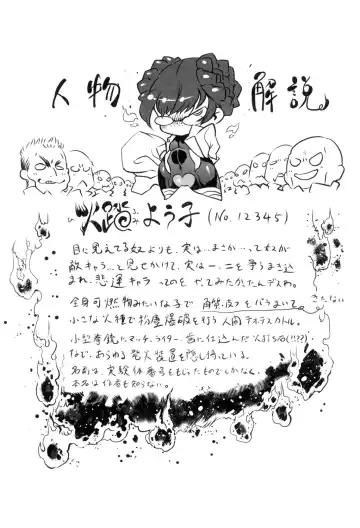 人物 解説
火踏よう子(No.12345)
ひ ふみ
目に見えてる奴よりも、実は…まさか…ってすが
敵キャラ…と見せかけて、実は一、二を争うまき込
まれ、悲運キャラってのをだしてみたかたんデスわ。
全身可燃物みたいな子で
きたない
小さな火種で粉塵爆破を行う人間
小型 マッチ、ライター、歯に仕込んだ火打ち石(!!??)
など、あらゆる発火装置を隠し持っている。
名前は、実験体番号をもじったものでしかなく、
本名は作者も知らない。